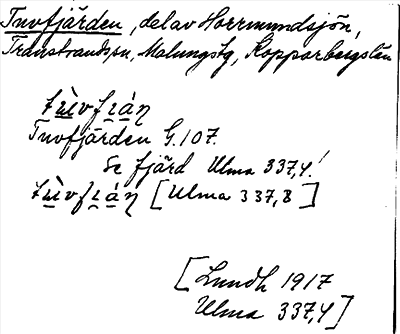 Tuvfjärden, del av Horrmundsjön,
Transtrands sn, Malungs tg, Kopparbergs län
Tuvfjärden G. 107.
Se fjärd Ulma 337,4!
[Ulma 337,8]
[Lundh 1917
Ulma 337,4]